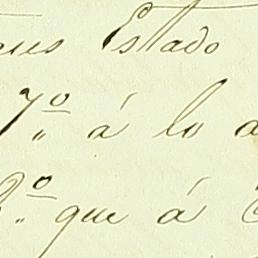 Estado
7º á lo
º que á